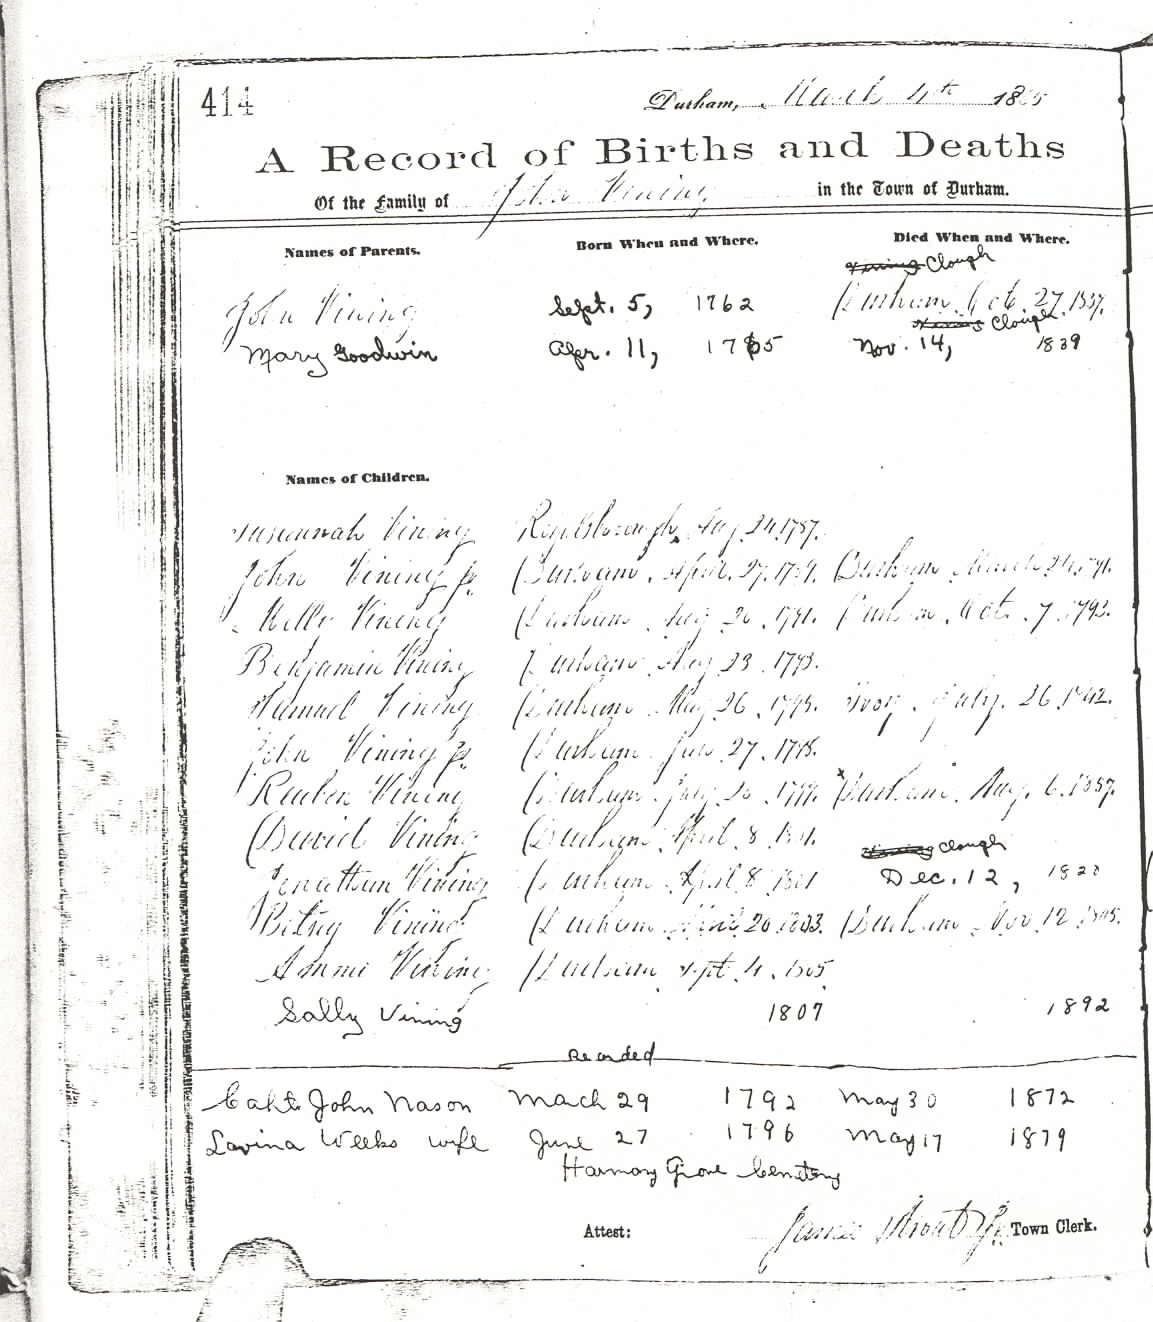 414
Durham, March 4th 18 5
A Record of Births and Deaths
Of the Family of John Vining in the Town of Durham.
Names of Parents. Born When and Where. Died When and Where.
Vining Clough
John Vining Sept. 5, 1762 Durham, Oct. 27. 1837.
Clough
Mary Goodwin Apr. 11, 1765 Nov. 14, 1839
Names of Children.
Susannah Vining Royalsborough, Aug 24.1787.
John Vining Jr. Durham. April. 27. 1789. Durham March 24.1791.
Vining Durham. Aug 20. 1791. Durham. Oct. 7. 1792.
Benjamin Vining Durham Aug 23. 1793.
Samuel Vining Durham. May 26. 1795. Troy. July. 26.1842.
John Vining Jr. Durham. Jan. 27. 1798.
Reuben Vining Durham. July 20. 1799. Durham. Aug. 6. 1857.
David Vining Durham April. 8. 1801.
Vining Clough
Jonathan Vining Durham. April 8. 1801 Dec. 12, 1820
Betsy Vining Durham. April 20.1803. Durham. Nov. 12. 1805.
Vining Durham Sept. 4. 1805.
Sally Vining 1807 1892
Recorded
Capt. John Nason March 29 1792 May 30 1872
Lavina Weeks wife June 27 1796 May 17 1879
Harmony Grove Cemetery
Attest: Strout Jr. Town Clerk.